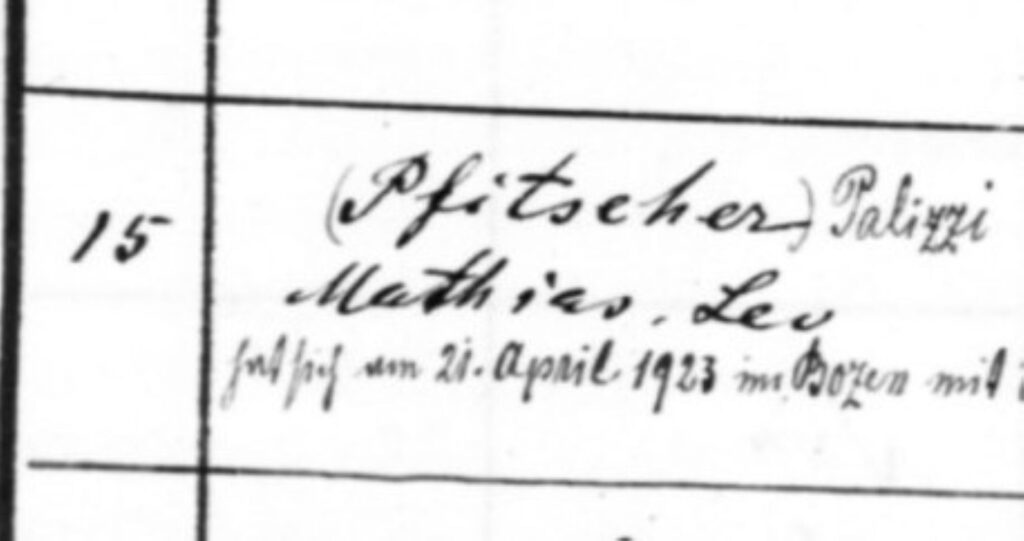 15 (Pfitscher) Palizzi
Mathias, Leo
hat sich am 21. April 1923 in Bozen mit